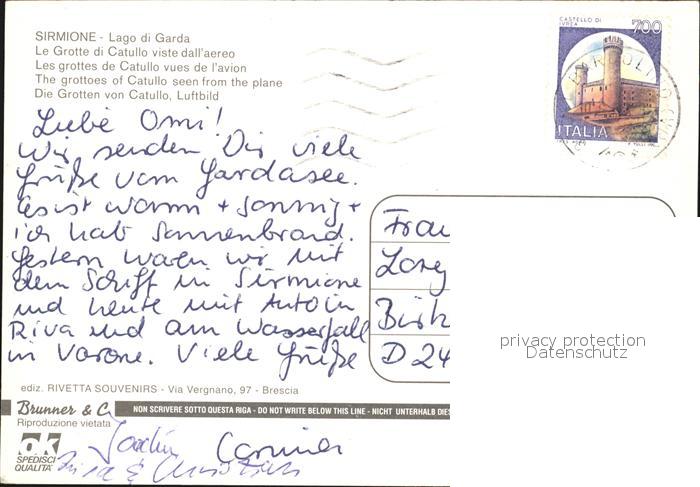 SIRMIONE - Lago di Garda
Le Grotte di Catullo viste dall'aereo
Les grottes de Catullo vues de l'avion
The grottoes of Catullo seen from the plane
Die Grotten von Catullo, Luftbild
CASTELLO DI
IVREA
700
ITALIA
Liebe Omi!
Wir senden Dir viele
Grüße vom Gardasee.
Es ist warm + sonnig +
ich hab Sonnenbrand.
Gestern waren wir mit
dem Schiff in Sirmione
und heute mit Auto in
Riva und am Wasserfall
in Varone. Viele Grüße
Frau
Birk
D 24
privacy protection
Datenschutz
ediz. RIVETTA SOUVENIRS - Via Vergnano, 97 - Brescia
Brunner & C.
NON SCRIVERE SOTTO QUESTA RIGA - DO NOT WRITE BELOW THIS LINE - NICHT UNTERHALB DIES
Riproduzione vietata
ok
SPEDISCI
QUALITA'
Joachim